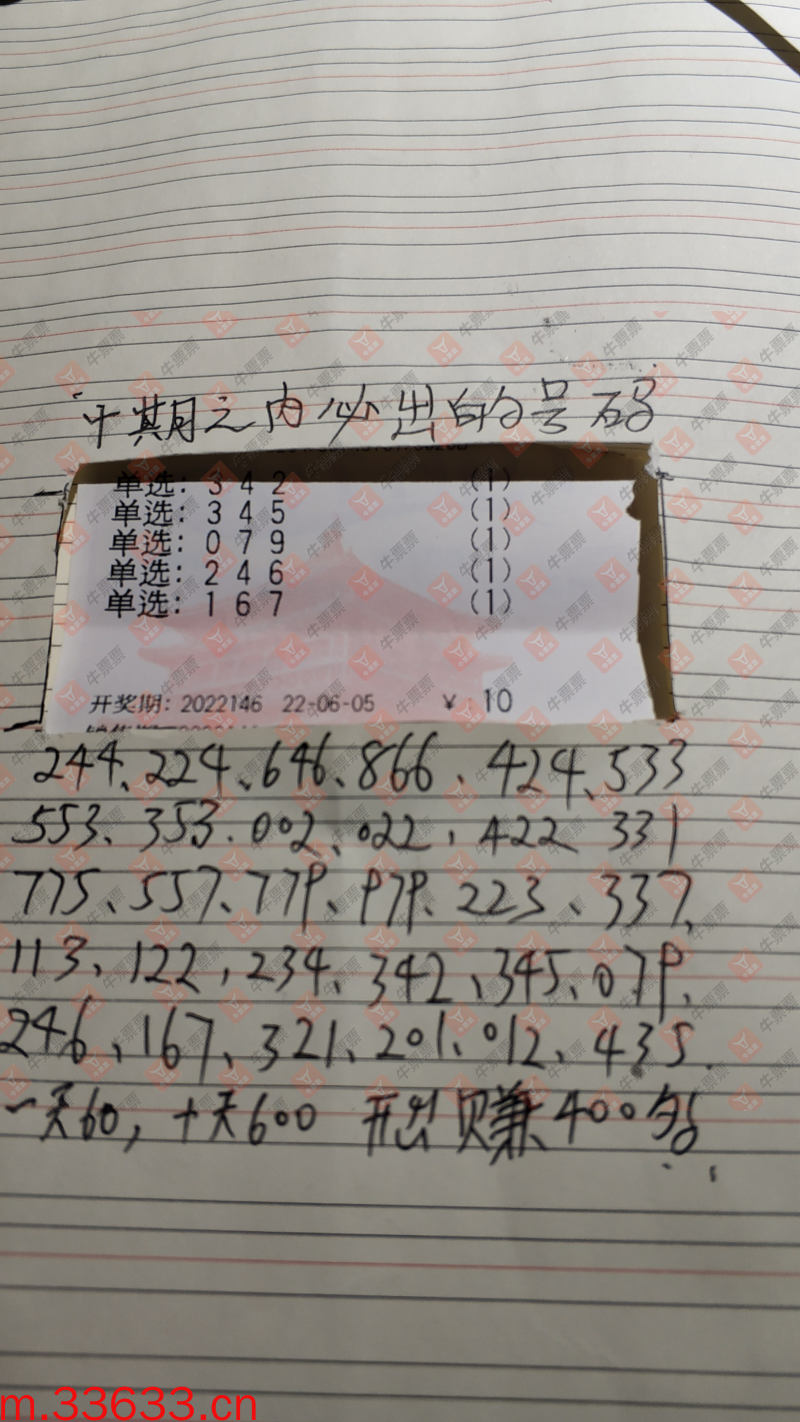 十期之内必出的号码
单选: 3 4 2 (1)
单选: 3 4 5 (1)
单选: 0 7 9 (1)
单选: 2 4 6 (1)
单选: 1 6 7 (1)
开奖期: 2022146 22-06-05 ¥: 10
244、224、646、866、424、533
553、353.002、022,422 331
775、557、779、979、223、337、
113、122,234、342、345、079、
246、167、321、201、012、435.
一天60,十天600 开出赚400多
牛票票
m.33633.cn